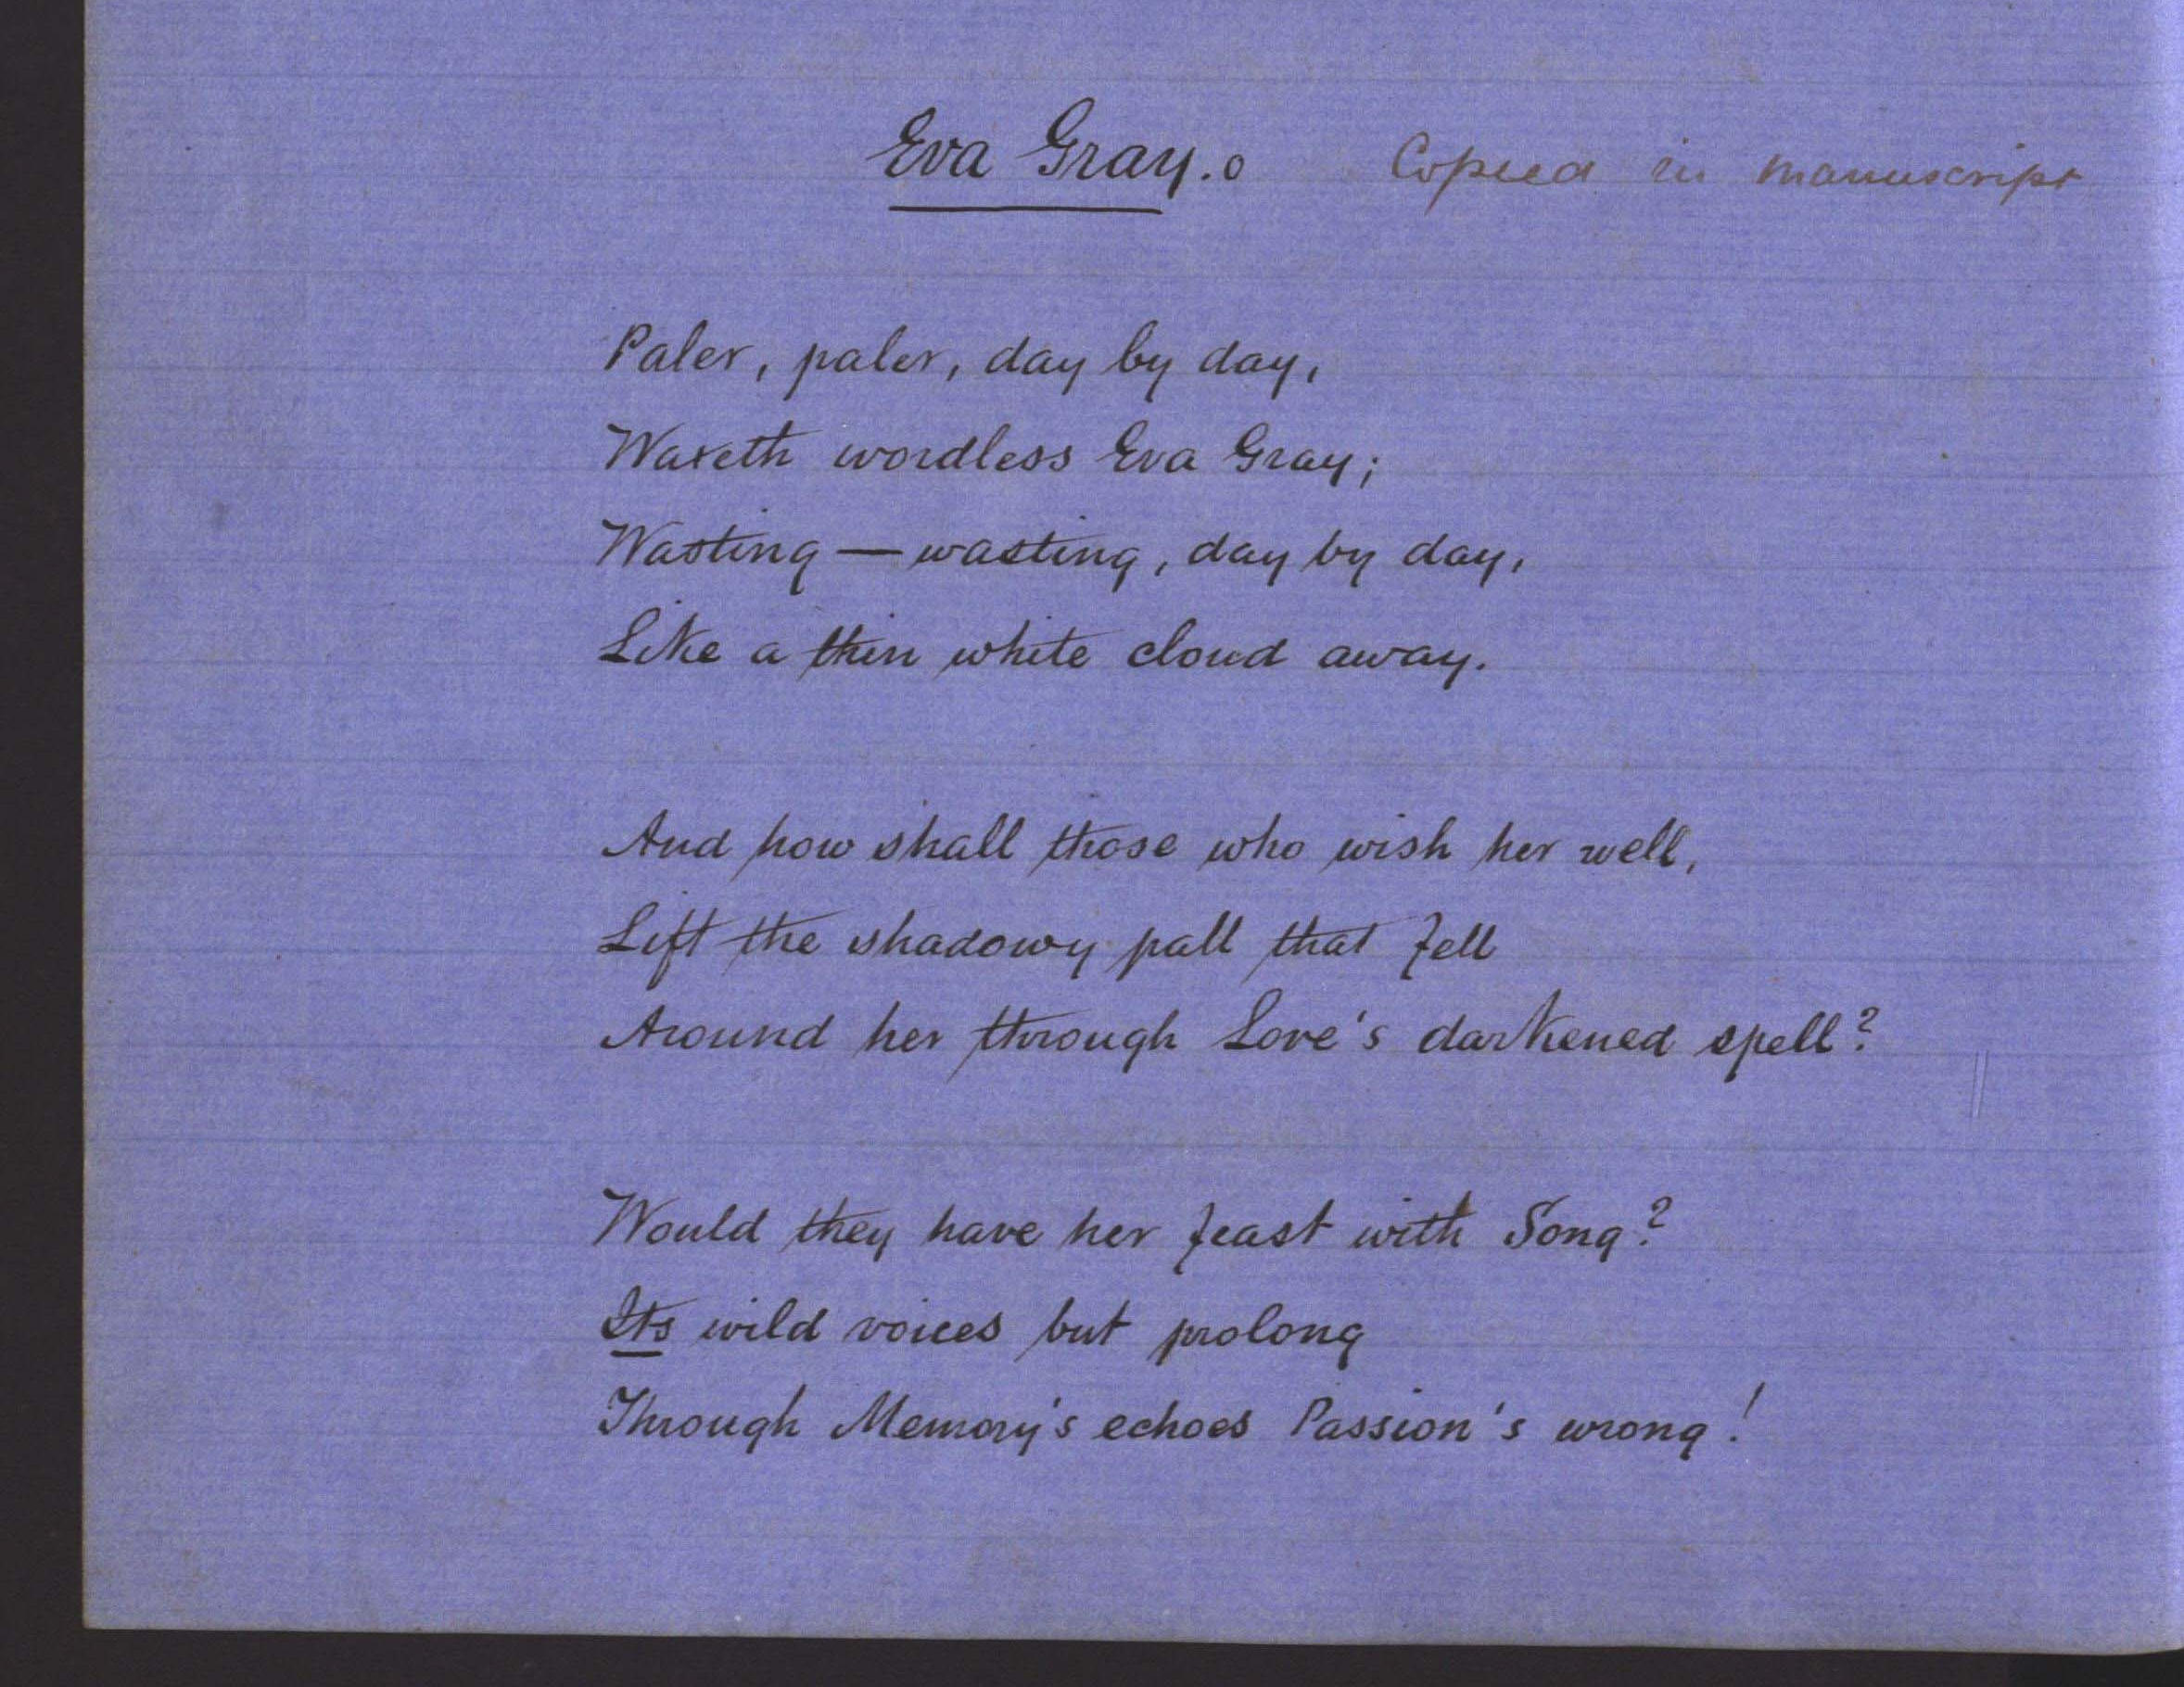 Eva Gray.o Copied in manuscript
Paler, paler, day by day,
Waxeth wordless Eva Gray;
Wasting — wasting, day by day,
Like a thin white cloud away.
And how shall those who wish her well,
Lift the shadowy pall that fell
Around her through Love's darkened spell?
Would they have her feast with Song?
Its wild voices but prolong
Through Memory's echoes Passion's wrong!